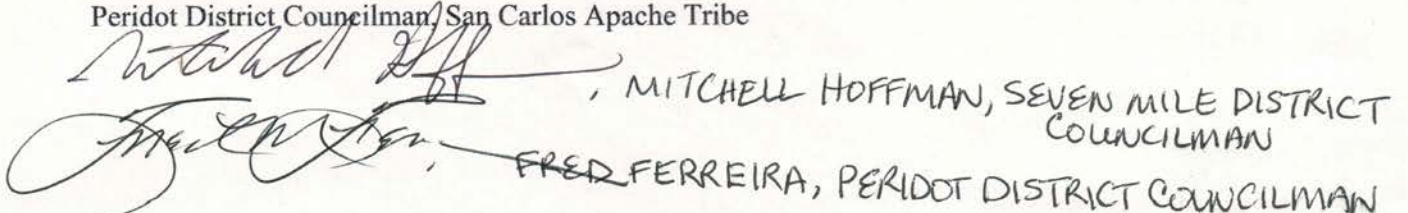 Peridot District Councilman, San Carlos Apache Tribe
, MITCHELL HOFFMAN, SEVEN MILE DISTRICT
COUNCILMAN
FRED FERREIRA, PERIDOT DISTRICT COUNCILMAN